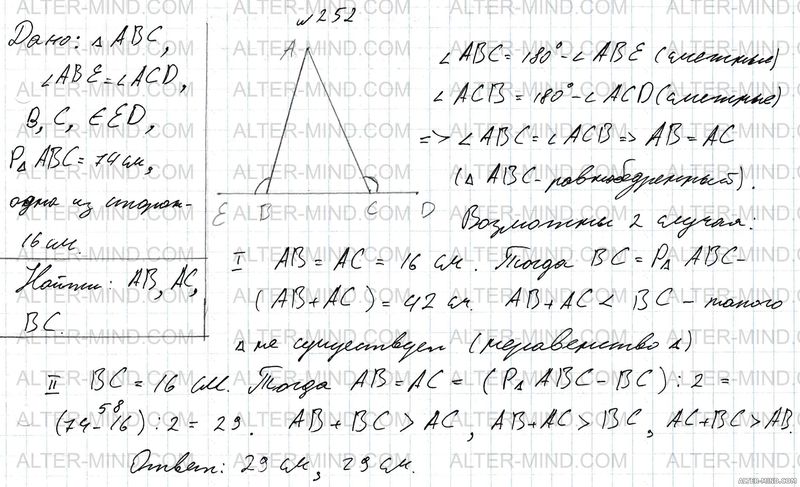 №252
Дано: △ABC,
∠ABE=∠ACD,
B, C, ∈ ED,
P△ABC=74см,
одна из сторон-
16 см.
Найти: AB, AC,
BC.
A
E B C D
∠ABC=180°-∠ABE (смежные)
∠ACB=180°-∠ACD (смежные)
=> ∠ABC=∠ACB=> AB=AC
(△ABC-равнобедренный).
Возможны 2 случая:
I AB=AC=16 см. Тогда BC=P△ABC-
(AB+AC)=42 см. AB+AC < BC - такого
△ не существует (неравенство △)
II BC=16 см. Тогда AB=AC=(P△ABC-BC):2=
58
(74-16):2=29. AB+BC>AC, AB+AC>BC, AC+BC>AB.
Ответ: 29 см, 29 см.
ALTER-MIND.COM